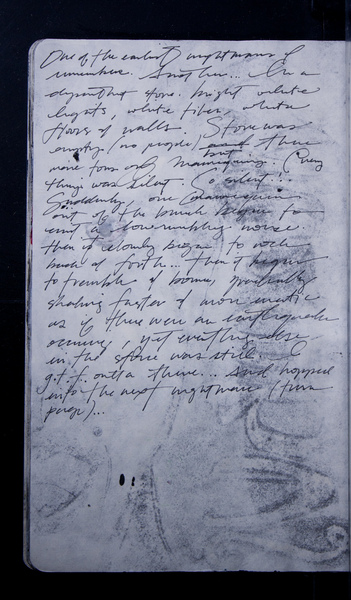 One of the earliest nightmares I
remember. Another... In a
department store. bright white
lights, white tiles, white
floors & walls. Store was
empty (no people), but there
were tons of mannequins. Every
thing was silent. So silent...
Suddenly, one mannequin
out of the bunch began to
emit a low rumbling noise.
then it slowly began to rock
back & forth... then it began
to tremble & hum, gradually
shaking faster & more erratic
as if there were an earthquake
occuring, yet everything else
in the store was still. I
g.t.f. outta there... And hopped
into the next nightmare (turn
page)...